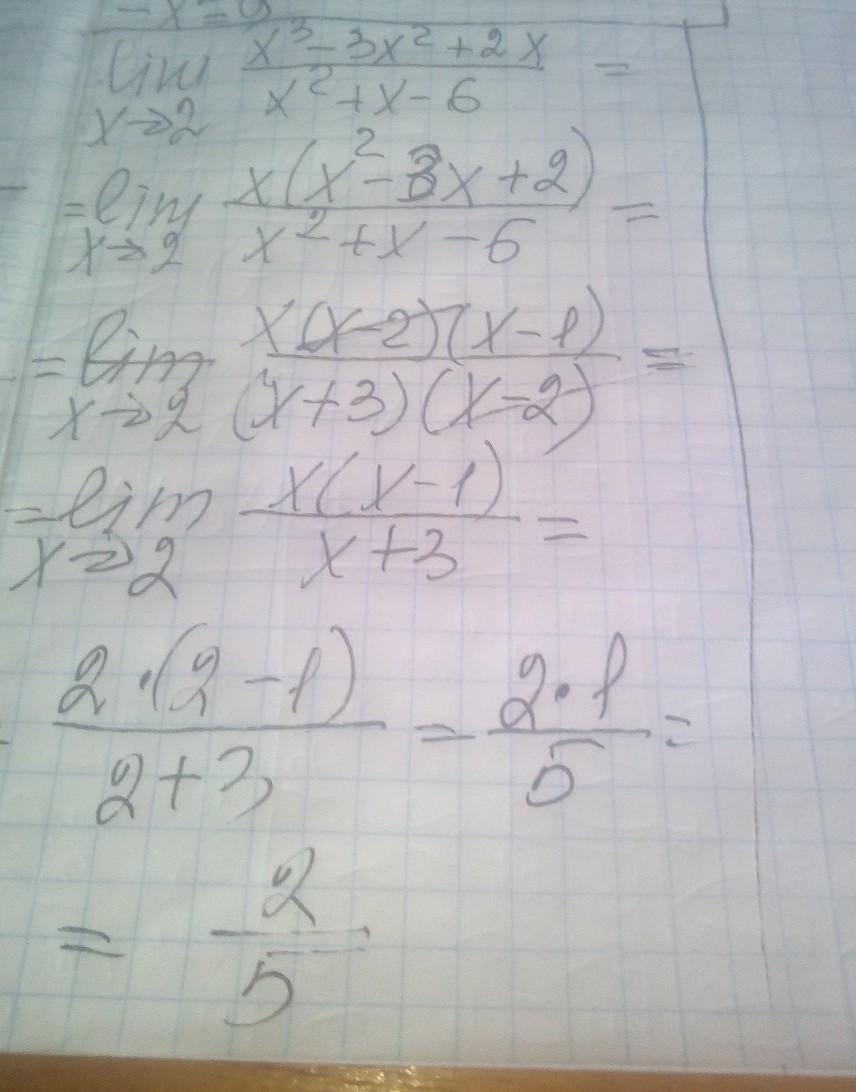 -x=0
lim x→2 (x³-3x²+2x)/(x²+x-6) =
=lim x→2 x(x²-3x+2)/(x²+x-6) =
=lim x→2 x(x-2)(x-1)/(x+3)(x-2) =
=lim x→2 x(x-1)/(x+3) =
2·(2-1)/(2+3) = 2·1/5 =
= 2/5